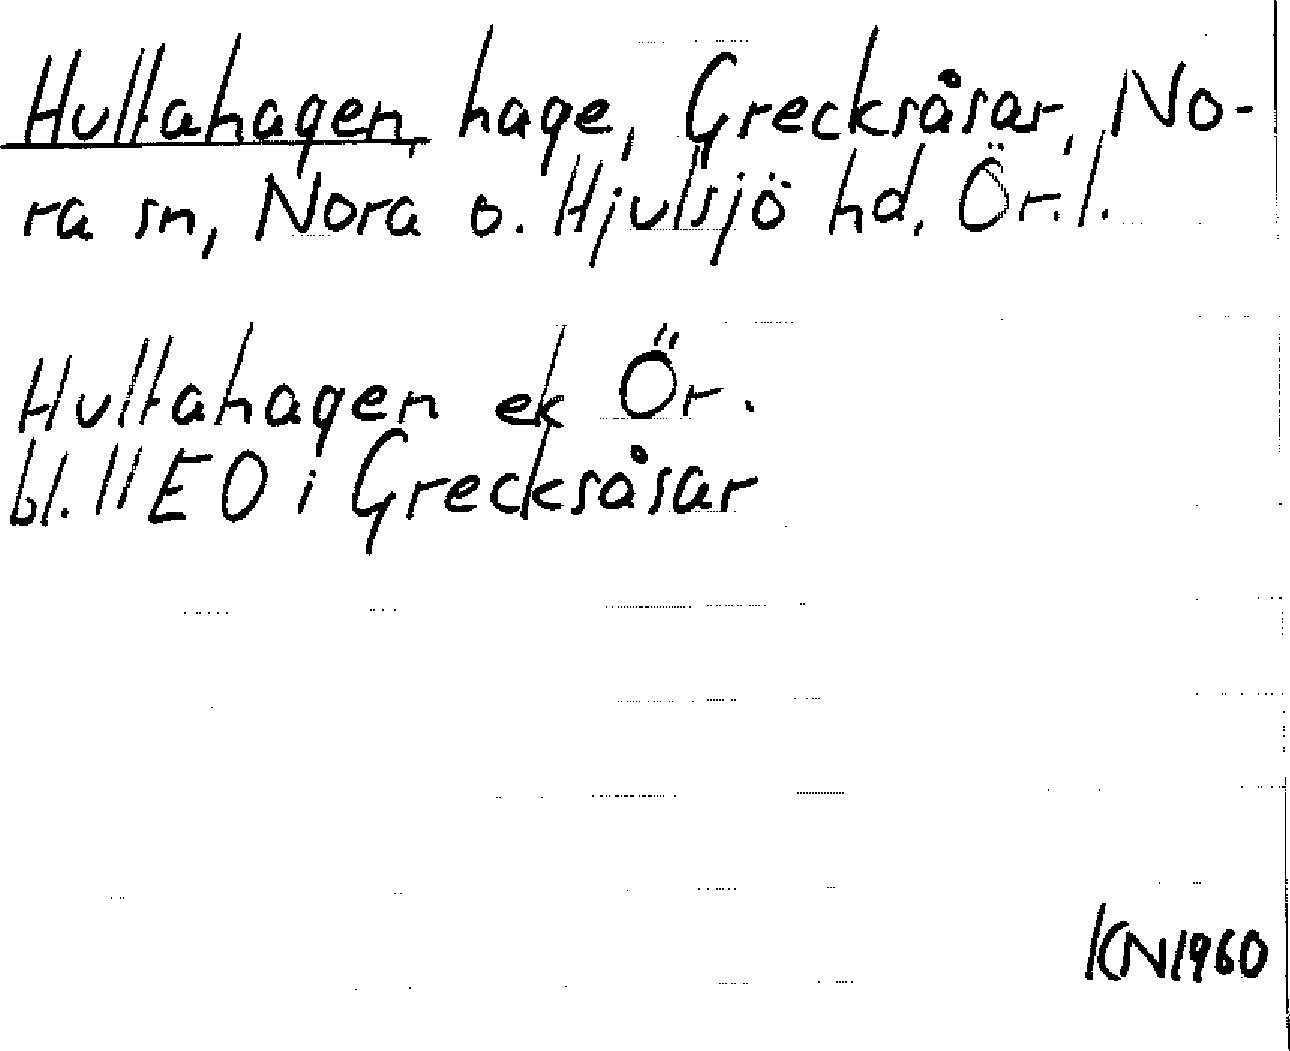 Hultahagen, hage, Grecksåsar, No-
ra sn, Nora o. Hjulsjö hd, Ör. l.
Hultahagen ek Ör.
bl. 11 E O i Grecksåsar
KN 1960